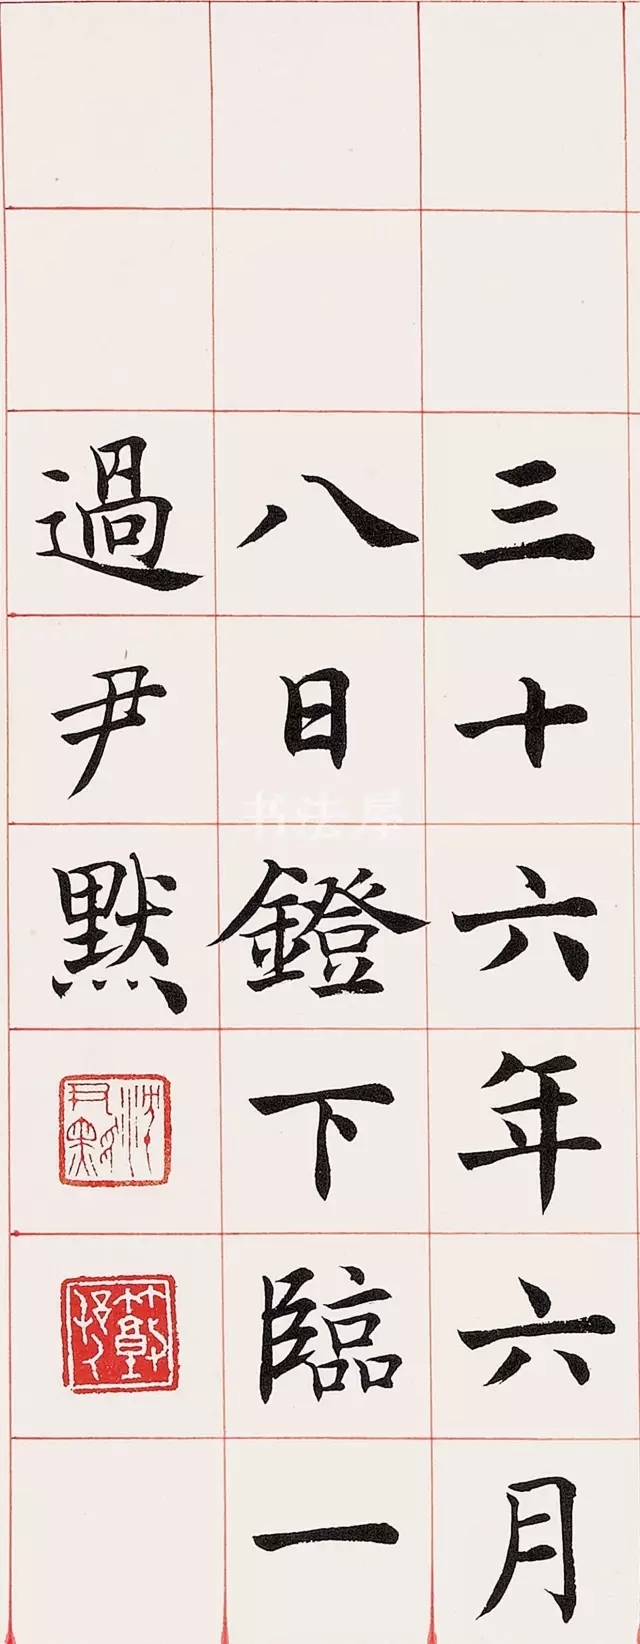 三十六年六月
八日鐙下臨一
過尹默
沈尹默
书法屋